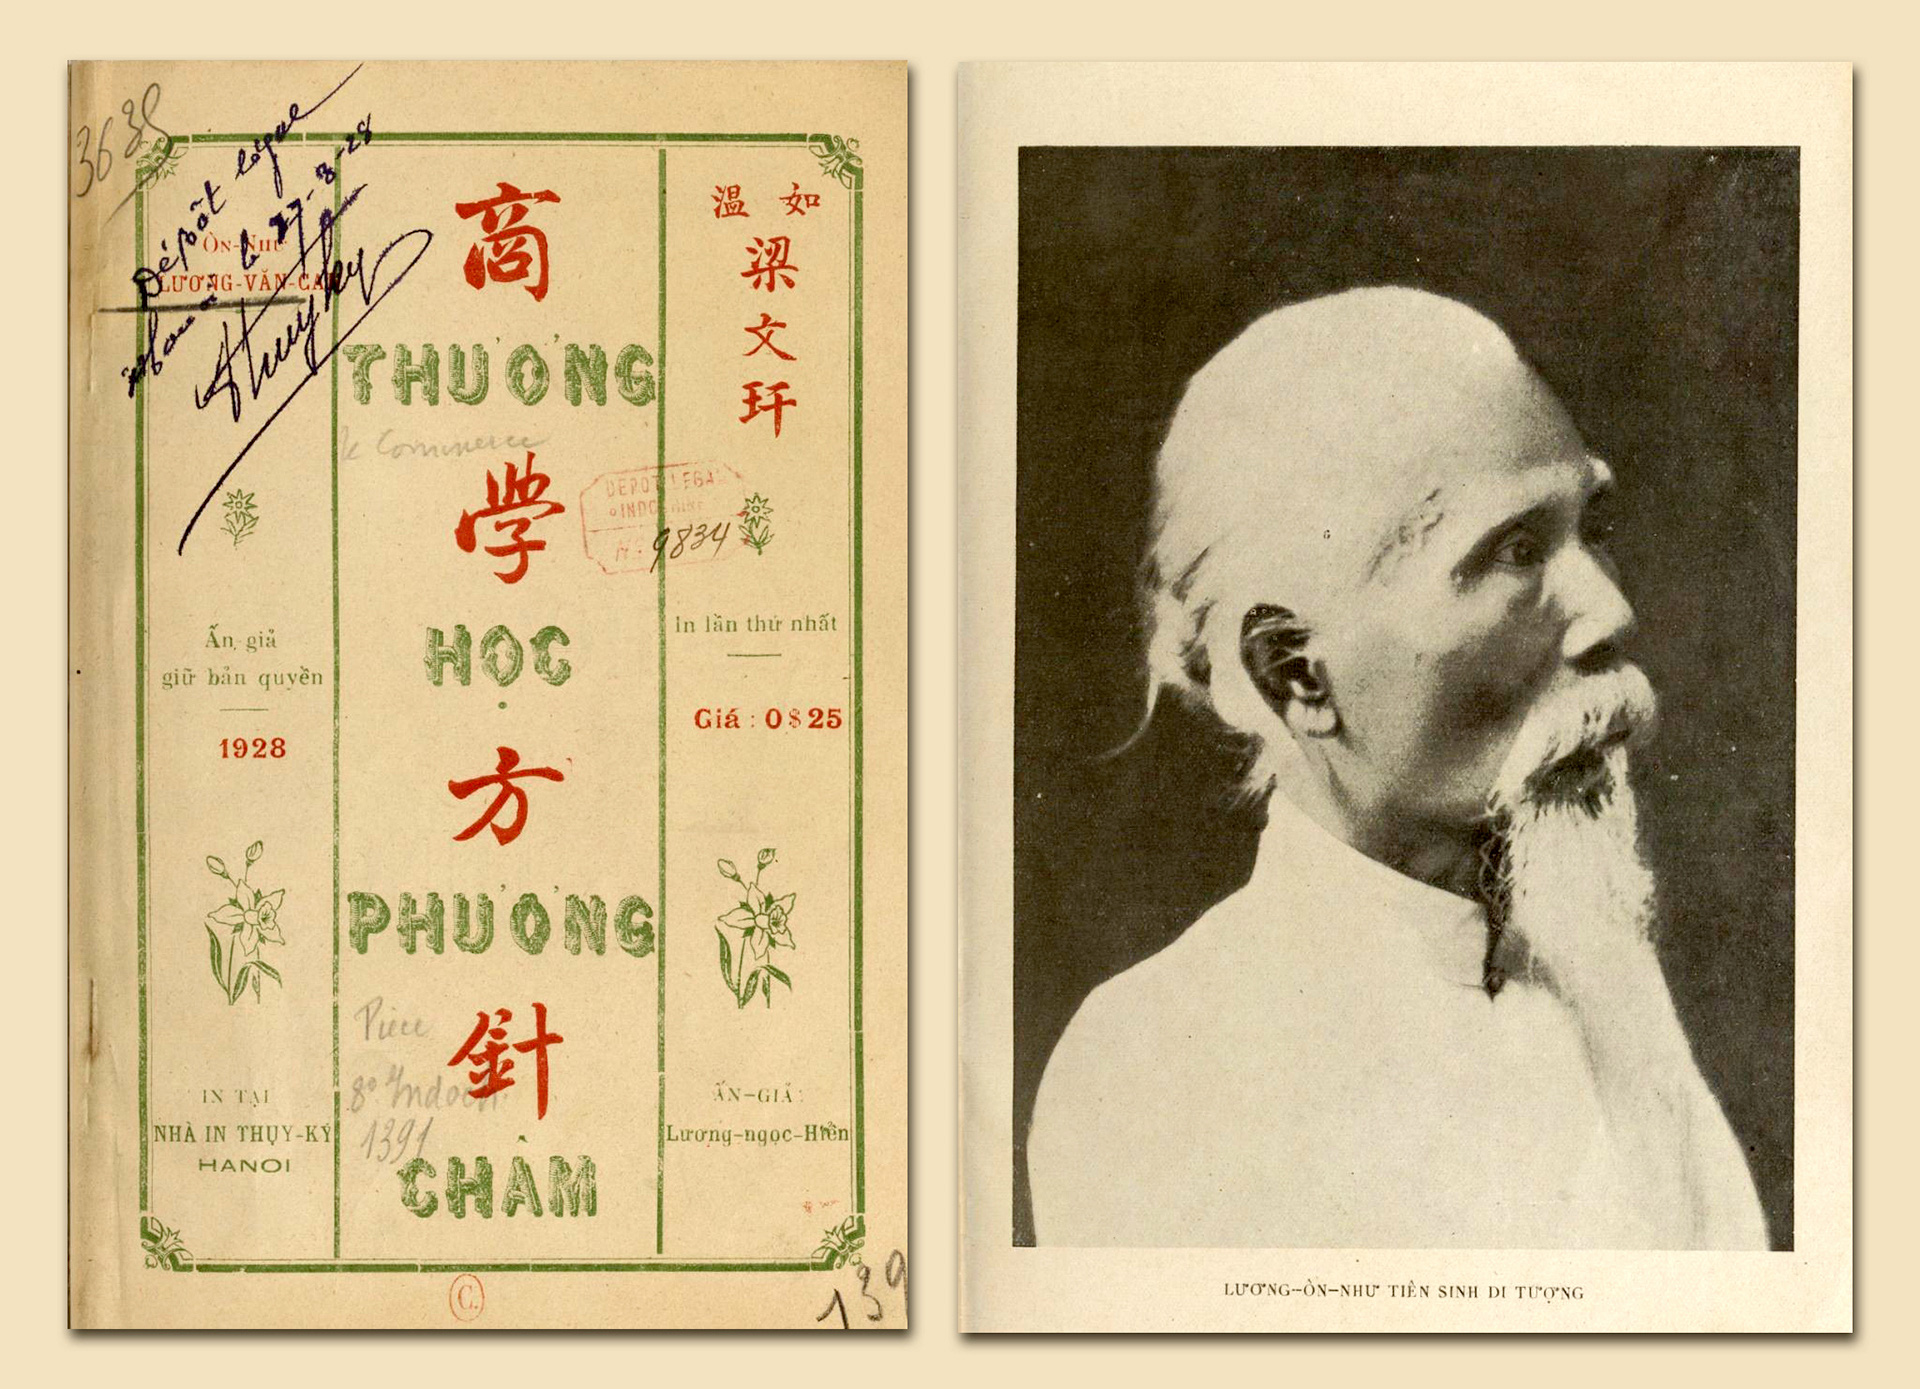 3639
Dépôt légal
Hanoi le 27-3-28
Thuyky
ÔN-NHƯ
LƯƠNG-VĂN-CAN
Ấn giả
giữ bản quyền
1928
IN TẠI
NHÀ IN THỤY-KÝ
HANOI
商
THƯƠNG
le Commerce
學
HỌC
方
PHƯƠNG
Pièce
8º Indoch.
1391
針
CHÂM
溫 如
梁
文
玕
DÉPÔT LÉGAL
INDOCHINE
Nº 9834
In lần thứ nhất
Giá : 0$25
ẤN-GIẢ :
Lương-ngọc-Hiền
C.
139
LƯƠNG-ÔN-NHƯ TIÊN SINH DI TƯỢNG